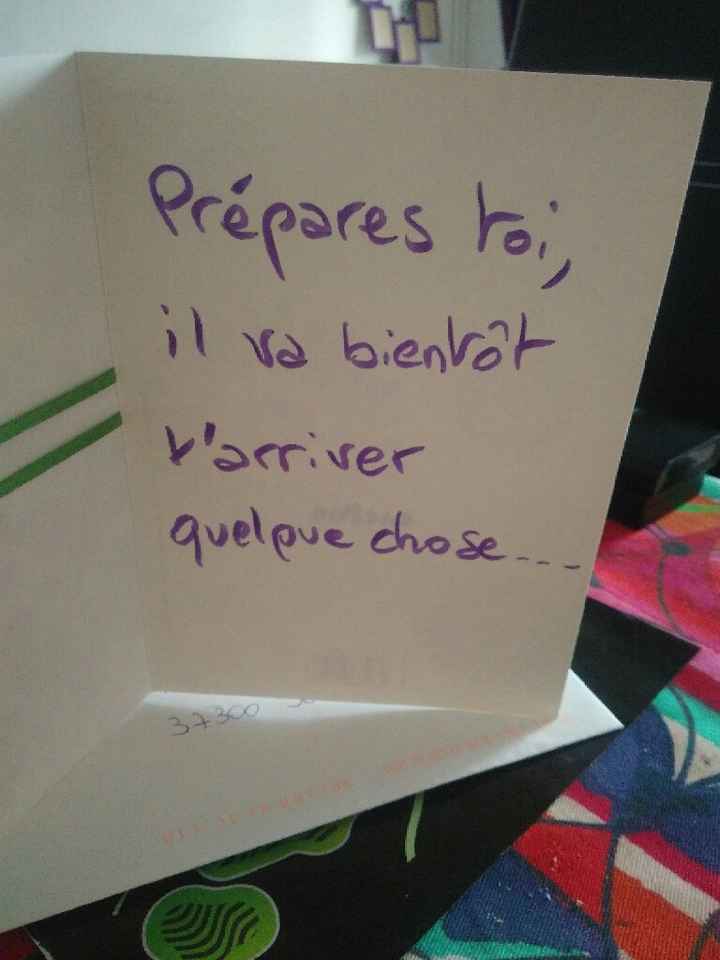 Prépares toi,
il va bientôt
t'arriver
quelque chose...
37300